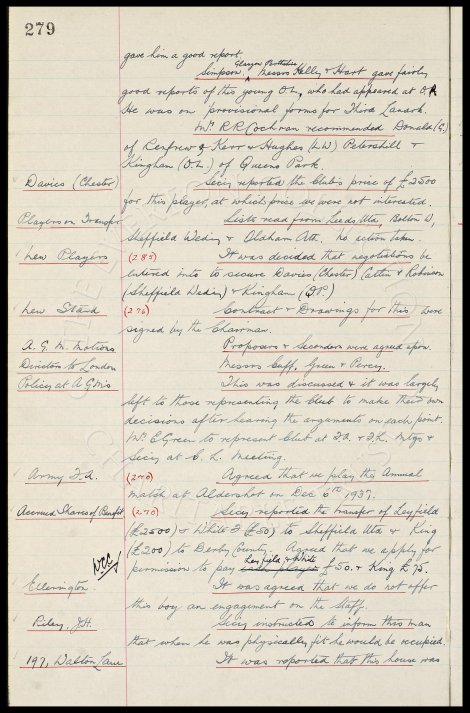 279
gave him a good report
Simpson, Glasgow Perthshire Messrs Kelly & Hart gave fairly
good reports of this young O.L., who had appeared at
He was on provisional forms for Third Lanark.
Mr R.R. Cochran recommended Donald
of Renfrew & Kerr & Hughes (LW) Petershill &
Kinghan (O.L.) of Queens Park
Davies (Chester) Secy reported the Club's price of £2500
for this player, at which price we were not interested.
Players on Transfer Lists read from Leeds Utd, Bolton W,
Sheffield Wedny & Oldham Ath. No action taken.
New Players (285) It was decided that negotiations be
entered into to secure Davies (Chester) Catlin & Robinson
(Sheffield Wedny) & Kinghan (Q.P.)
New Stand (276) Contract & Drawings for this were
signed by the Chairman.
A.G.M. Motions Proposers & Seconders were agreed upon.
Directors to London Messrs Cuff, Green & Percy.
Policy at A.G.M's This was discussed & it was largely
left to those representing the Club to make their own
decisions after hearing the arguments on each point.
Mr E. Green to represent Club at F.A. & F.L. Mtgs &
Secy at C.L. Meeting.
Army F.A. (240) Agreed that we play the Annual
match at Aldershot on Dec 6th 1937.
Accrued Shares of Benefit (270) Secy reported the transfer of Leyfield
(£2500) & White F (£50) to Sheffield Utd & King
(£200) to Derby County. Agreed that we apply for
permission to pay each player Leyfield & White £50. & King £75.
WCC
Ellerington. It was agreed that we do not offer
this boy an engagement on the Staff.
Riley, J.H. Secy instructed to inform this man
that when he was physically fit he would be reoccupied.
197, Walton Lane It was reported that this house was